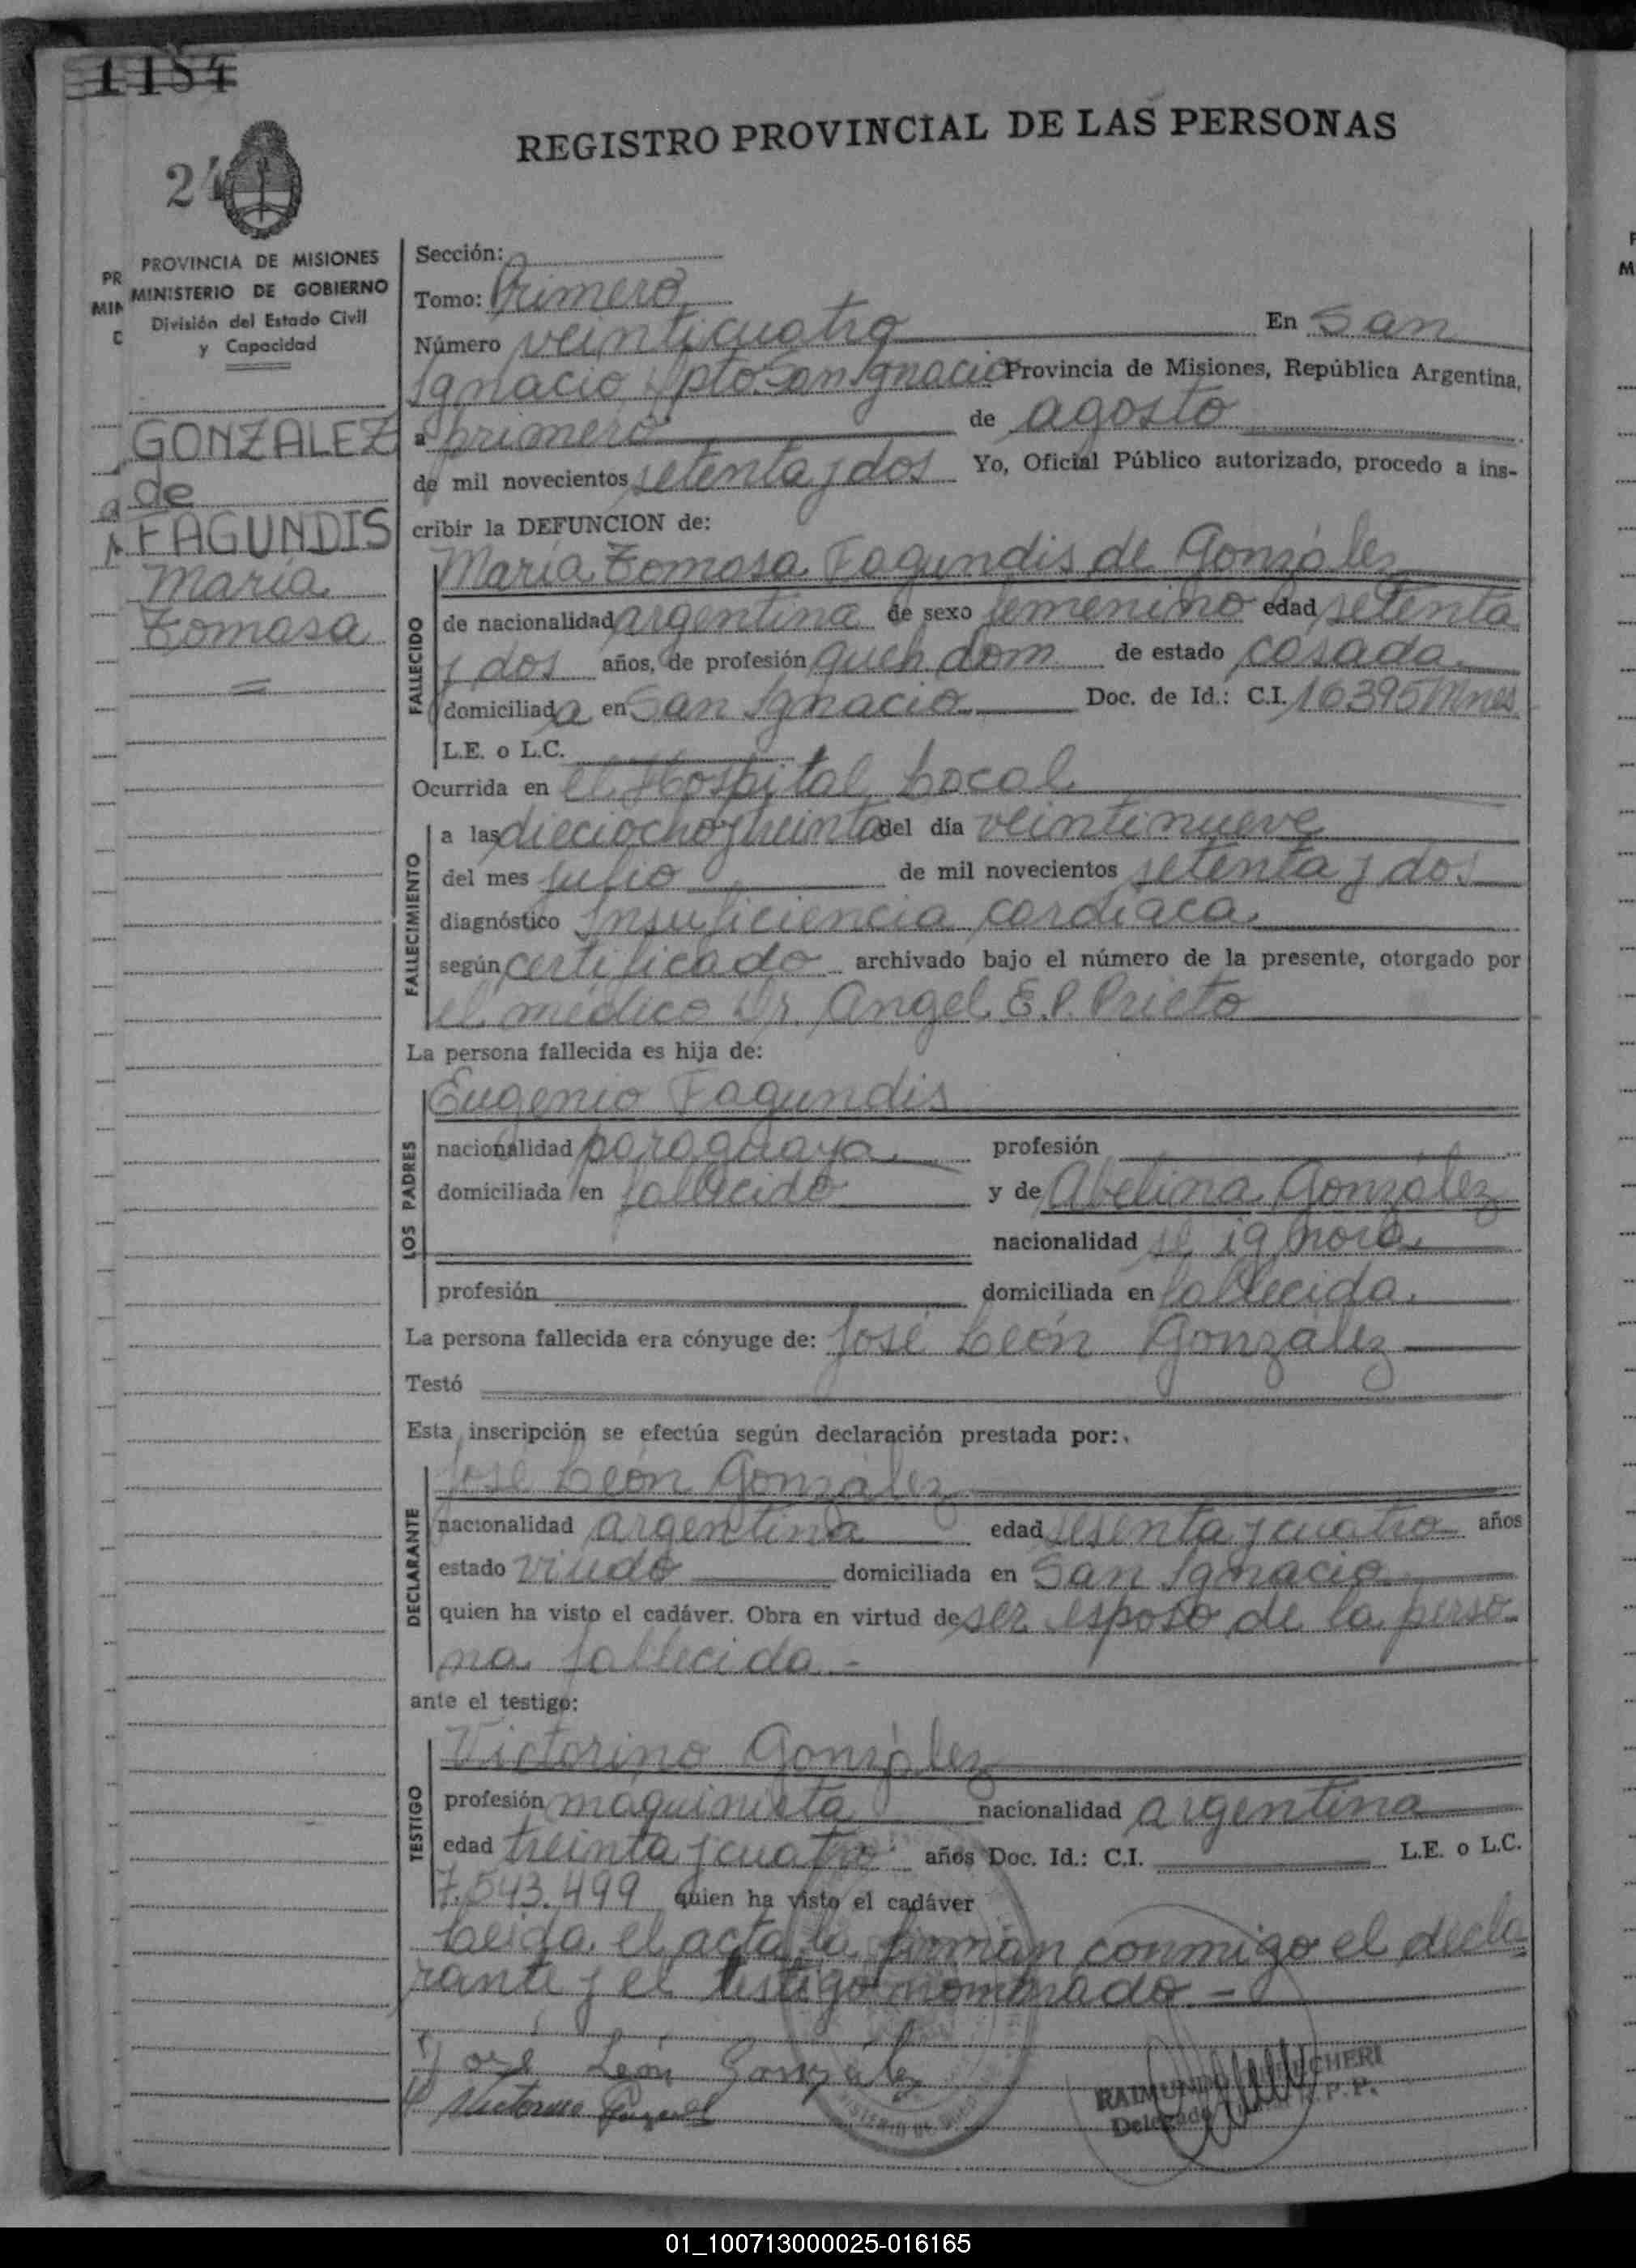 1184
24
REGISTRO PROVINCIAL DE LAS PERSONAS
PROVINCIA DE MISIONES
MINISTERIO DE GOBIERNO
División del Estado Civil
y Capacidad
GONZALEZ
de
FAGUNDIS
María
Tomasa
Sección:
Tomo: Primero
Número veinticuatro En San
Ignacio, Dpto. San Ignacio Provincia de Misiones, República Argentina,
a primero de agosto
de mil novecientos setenta y dos Yo, Oficial Público autorizado, procedo a ins-
cribir la DEFUNCION de:
FALLECIDO
María Tomasa Fagundis de González
de nacionalidad argentina de sexo femenino edad setenta
y dos años, de profesión queh. dom. de estado casada
domiciliada en San Ignacio Doc. de Id.: C.I. 16395 Mnes
L.E. o L.C.
Ocurrida en el Hospital Local
FALLECIMIENTO
a las dieciocho y treinta del día veintinueve
del mes julio de mil novecientos setenta y dos
diagnóstico Insuficiencia cardíaca
según certificado archivado bajo el número de la presente, otorgado por
el médico Dr. Angel E.P. Prieto
La persona fallecida es hija de:
LOS PADRES
Eugenio Fagundis
nacionalidad paraguaya profesión
domiciliada en fallecido y de Abelina González
nacionalidad se ignora
profesión domiciliada en fallecida.
La persona fallecida era cónyuge de: José León González
Testó
Esta inscripción se efectúa según declaración prestada por:
DECLARANTE
José León González
nacionalidad argentina edad sesenta y cuatro años
estado viudo domiciliada en San Ignacio
quien ha visto el cadáver. Obra en virtud de ser esposo de la perso-
na fallecida.-
ante el testigo:
TESTIGO
Victorino González
profesión maquinista nacionalidad argentina
edad treinta y cuatro años Doc. Id.: C.I. L.E. o L.C.
7.543.499 quien ha visto el cadáver
Leída el acta la firman conmigo el decla-
rante y el testigo nominado.-
José León González
Victorino González
RAIMUNDO
Delegado
01_100713000025-016165